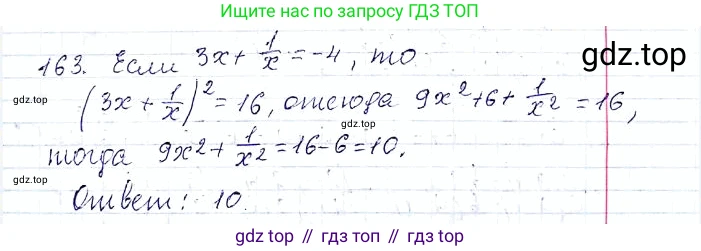 Ищите нас по запросу ГДЗ ТОП
163. Если 3x + 1/x = -4, то
gdz.top
(3x + 1/x)² = 16, отсюда 9x² + 6 + 1/x² = 16,
gdz.top
gdz.top
тогда 9x² + 1/x² = 16 - 6 = 10.
gdz.top
Ответ: 10.
gdz.top // гдз топ // gdz.top // гдз топ